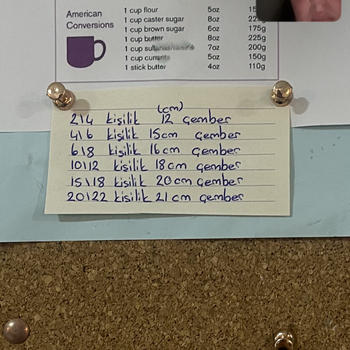 American
Conversions
1 cup flour 5oz
1 cup caster sugar 8oz
1 cup brown sugar 6oz 175g
1 cup butter 8oz 225g
1 cup 7oz 200g
1 cup currants 5oz 150g
1 stick butter 4oz 110g
(cm)
2\4 kisilik 12 çember
4\6 kisilik 15cm çember
6\8 kisilik 16cm çember
10\12 kisilik 18cm çember
15\18 kisilik 20cm çember
20\22 kisilik 21cm çember